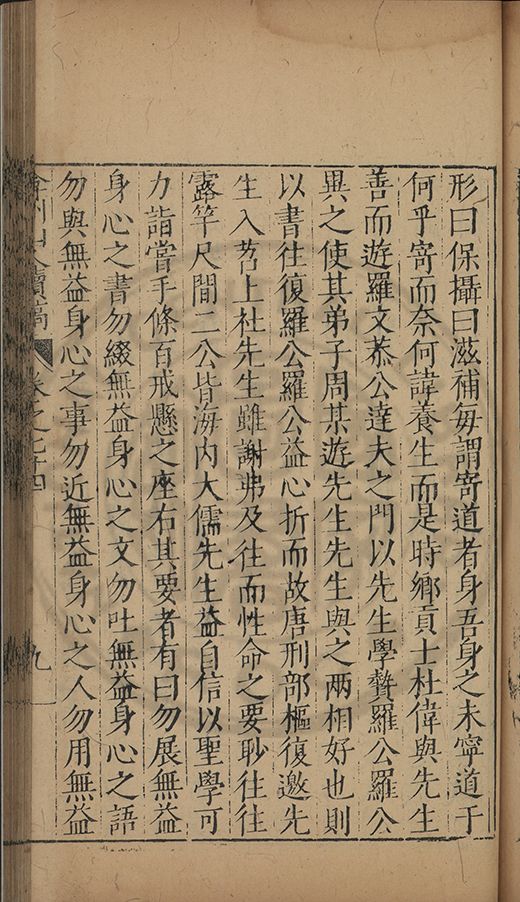 形曰保攝曰滋補每謂寄道者身吾身之未寧道于
何乎寄而奈何諱養生而是時鄉貢士杜偉與先生
善而遊羅文恭公達夫之門以先生學贄羅公羅公
異之使其弟子周某遊先生先生與之兩相好也則
以書往復羅公羅公益心折而故唐刑部樞復邀先
生入苕上社先生雖謝弗及往而性命之要眇往往
露竿尺間二公皆海内大儒先生益自信以聖學可
力詣嘗手條百戒懸之座右其要者有曰勿展無益
身心之書勿綴無益身心之文勿吐無益身心之語
勿與無益身心之事勿近無益身心之人勿用無益
弇州山人續稿 卷之七十四 九